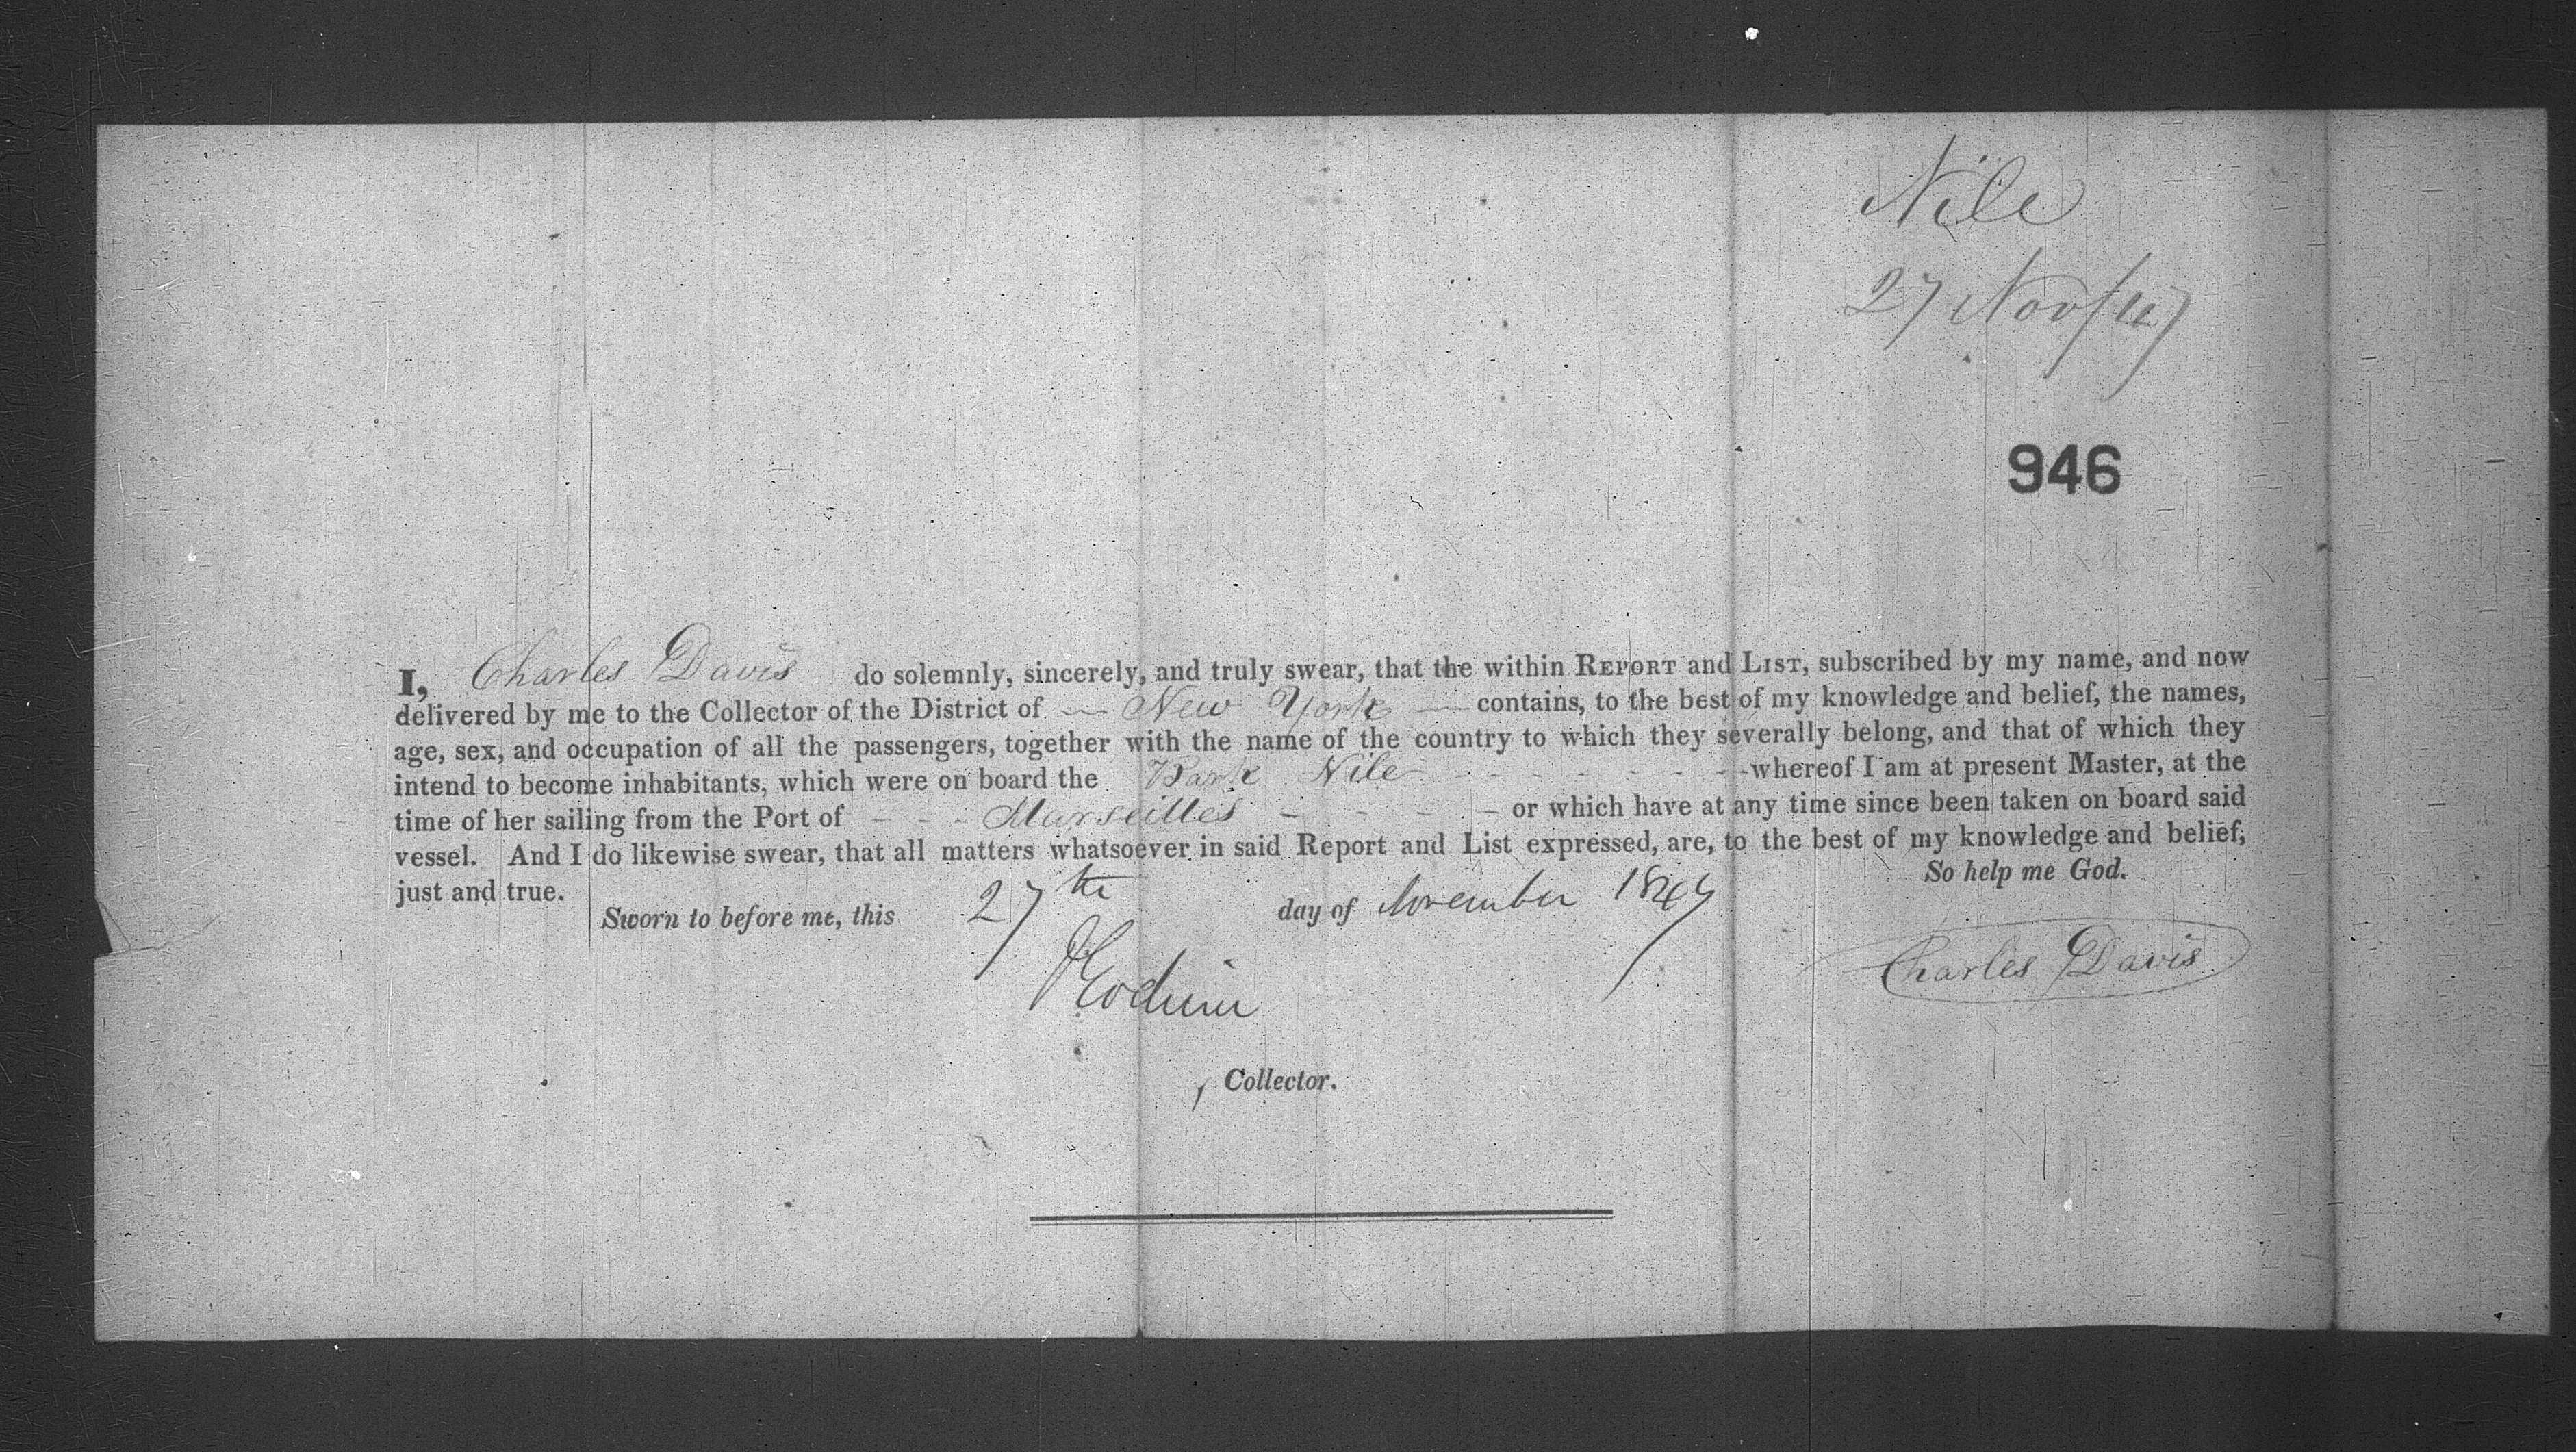 Nile
27 Nov/47
946
I, Charles Davis do solemnly, sincerely, and truly swear, that the within REPORT and LIST, subscribed by my name, and now
delivered by me to the Collector of the District of — New York — contains, to the best of my knowledge and belief, the names,
age, sex, and occupation of all the passengers, together with the name of the country to which they severally belong, and that of which they
intend to become inhabitants, which were on board the Bark Nile - - - - - - whereof I am at present Master, at the
time of her sailing from the Port of - - - Marseilles - - - - - or which have at any time since been taken on board said
vessel. And I do likewise swear, that all matters whatsoever in said Report and List expressed, are, to the best of my knowledge and belief,
just and true. So help me God.
Sworn to before me, this 27th day of November 1847
Charles Davis
Collector.